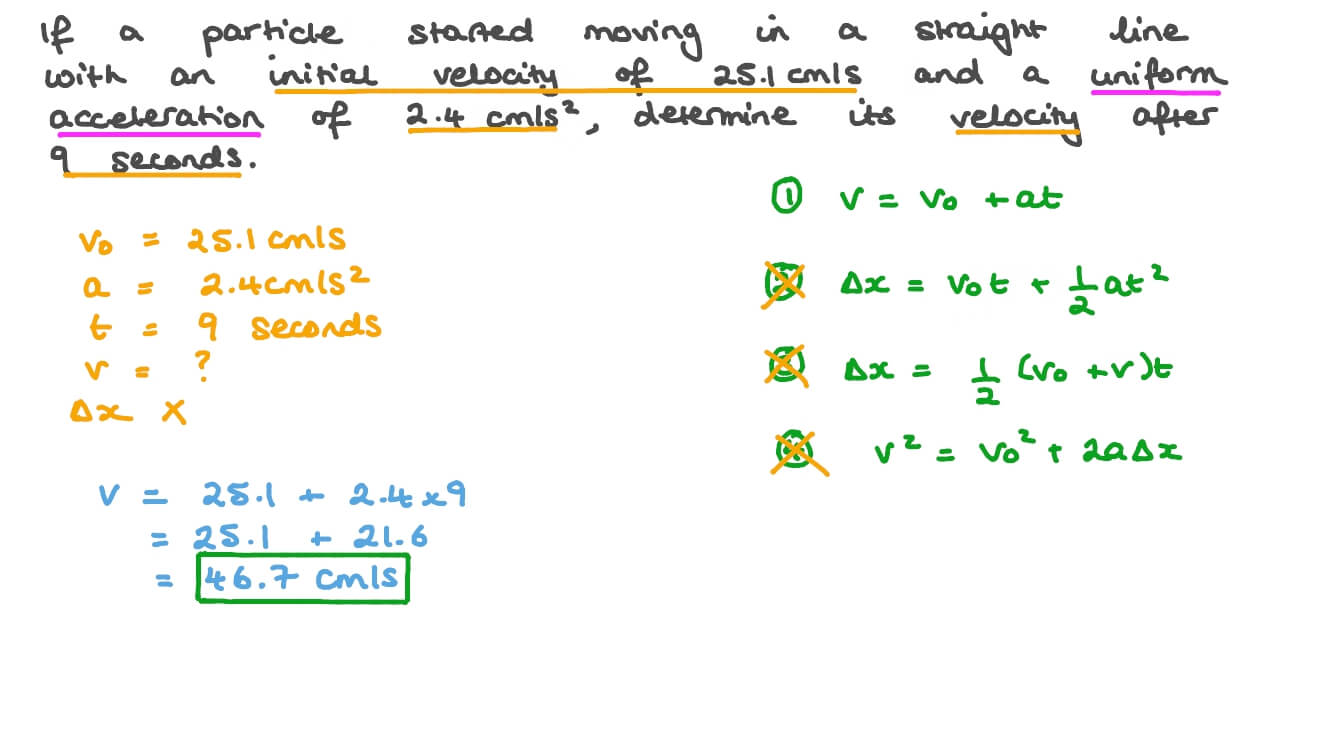 If a particle started moving in a straight line
with an initial velocity of 25.1 cm/s and a uniform
acceleration of 2.4 cm/s², determine its velocity after
9 seconds.
① v = v₀ + at
v₀ = 25.1 cm/s
a = 2.4 cm/s²
t = 9 seconds
v = ?
Δx X
② Δx = v₀t + 1/2 at²
③ Δx = 1/2 (v₀ + v)t
④ v² = v₀² + 2aΔx
v = 25.1 + 2.4 x 9
= 25.1 + 21.6
= 46.7 cm/s